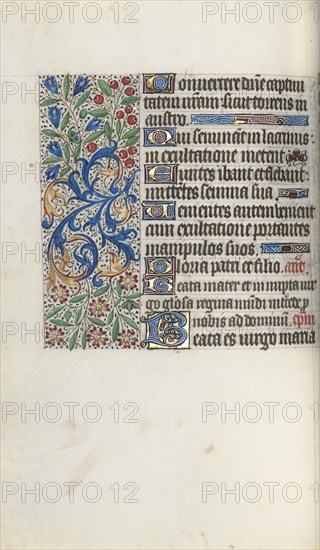 Convertere d̄ne captiui
tatem nr̄am sicut torrens in
austro.
Qui seminant in lacrimis:
in exultatione metent.
Euntes ibant et flebant:
mittētes semina sua.
Venientes autem venient
cum exultatione portantes
manipulos suos.
Gloria patri et filio. añ.
Beata mater et innupta vir
go gloriosa regina mūdi intercede p
nobis ad dominū. capłm
Beata es virgo maria
PHOTO 12
PHOTO 12
PHOTO 12
PHOTO 12
PHOTO 12
PHOTO 12
PHOTO 12
PHOTO 12